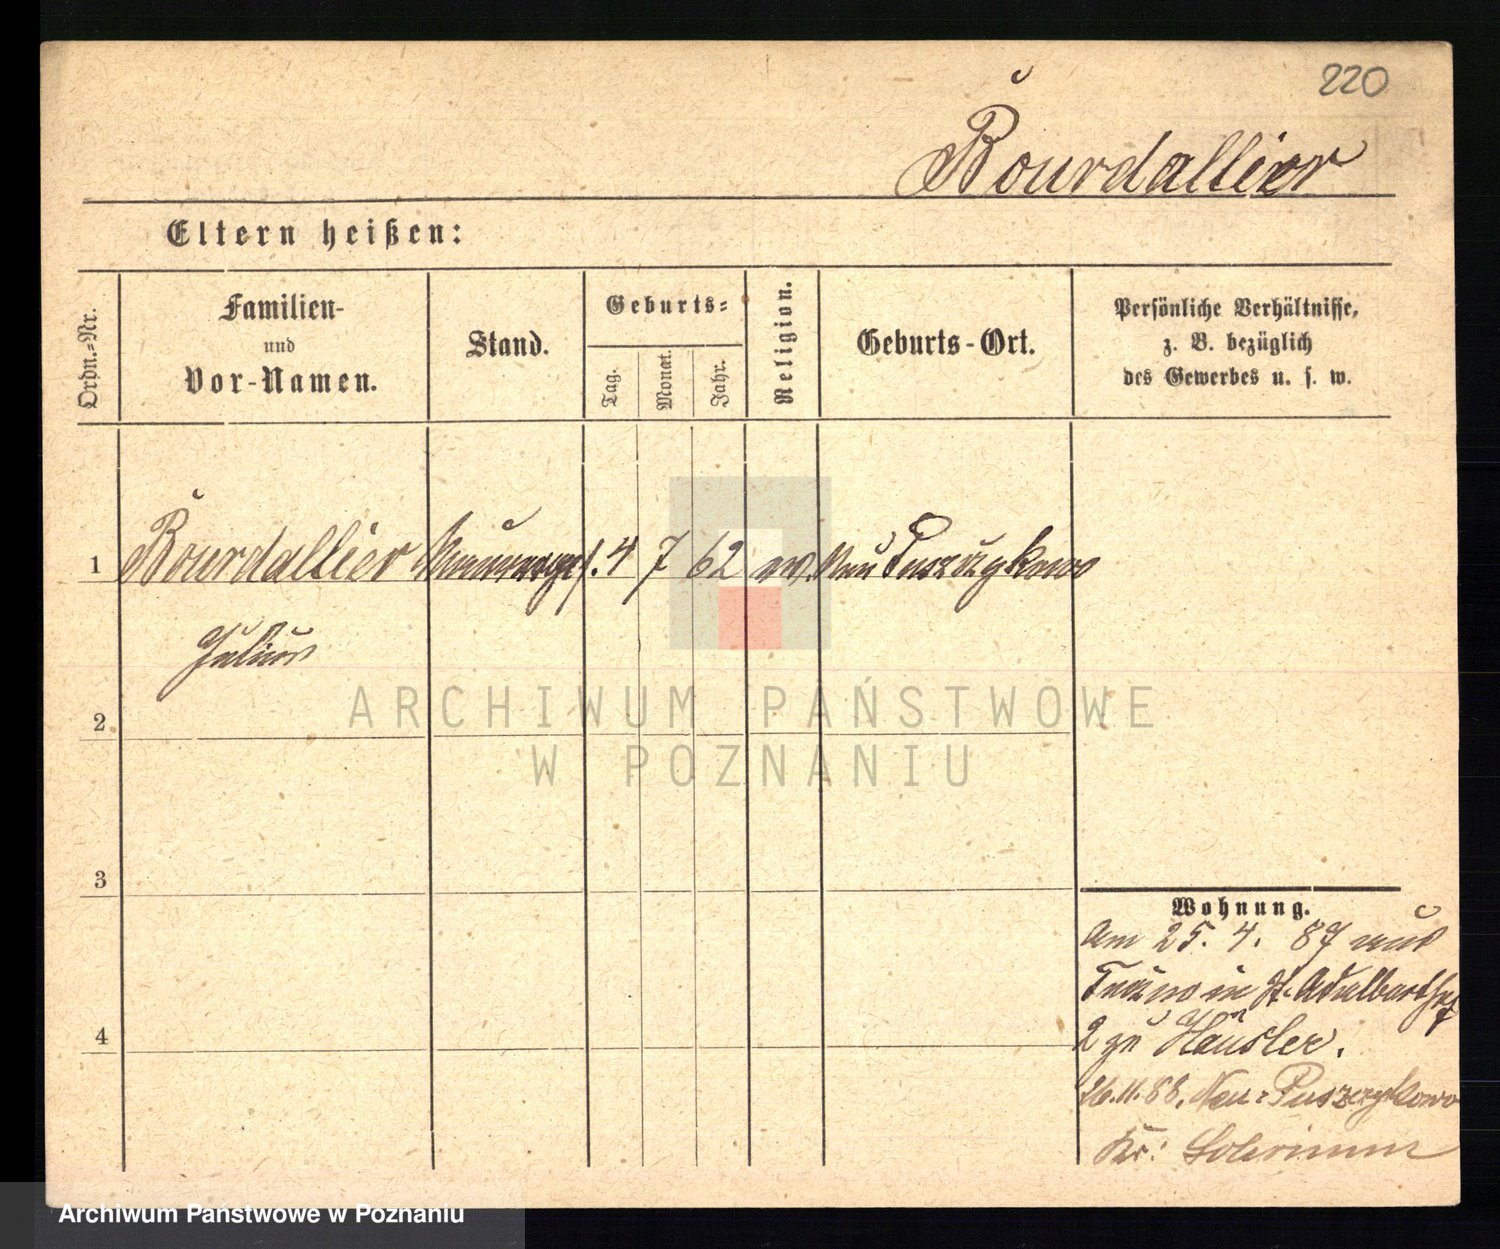 220
Bourdallier
Eltern heißen:
Ordn.-Nr.
Familien-
und
Vor-Namen.
Stand.
Geburts-
Tag.
Monat.
Jahr.
Religion.
Geburts-Ort.
Persönliche Verhältnisse,
z. B. bezüglich
des Gewerbes u. s. w.
1 Bourdallier 4 7 62 ev. Neu Puszczykowo
Julius
2
3
4
Wohnung.
Am 25. 4. 87 aus
in St. Adalbertstr
2 zu Häusler.
26.11.88. Neu-Puszczykowo
Kr:
ARCHIWUM PAŃSTWOWE
W POZNANIU
Archiwum Państwowe w Poznaniu